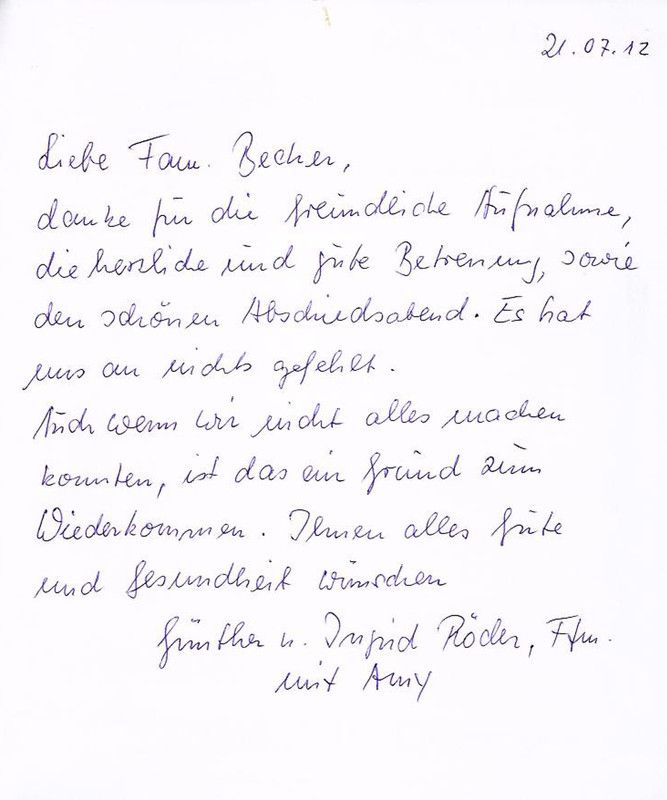 21.07.12
Liebe Fam. Becher,
danke für die freundliche Aufnahme,
die herzliche und gute Betreuung, sowie
den schönen Abschiedsabend. Es hat
uns an nichts gefehlt.
Auch wenn wir nicht alles machen
konnten, ist das ein Grund zum
Wiederkommen. Ihnen alles Gute
und Gesundheit wünschen
Günther u. Ingrid Röder, Ffm.
mit Amy